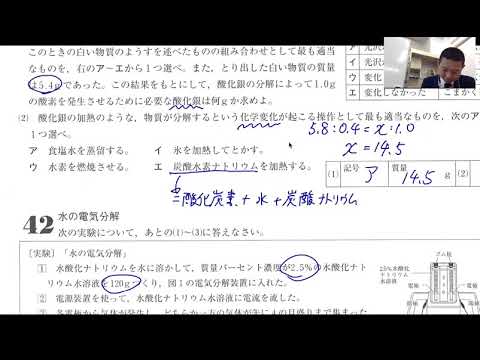 このときの白い物質のようすを述べたものの組み合わせとして最も適当
なものを，右のア～エから1つ選べ。また，とり出した白い物質の質量
は5.4gであった。この結果をもとにして，酸化銀の分解によって1.0g
の酸素を発生させるために必要な酸化銀は何gか求めよ。
ア 光沢
イ 光沢
ウ 変化
エ 変化しなかった こまかく
(2) 酸化銀の加熱のような，物質が分解するという化学変化が起こる操作として最も適当なものを，次のア
1つ選べ。
5.8:0.4=x:1.0
x=14.5
ア 食塩水を蒸留する。 イ 氷を加熱してとかす。
ウ 水素を燃焼させる。 エ 炭酸水素ナトリウムを加熱する。
(1) 記号 ア 質量 14.5 g (2)
二酸化炭素+水+炭酸ナトリウム
42 水の電気分解
次の実験について，あとの(1)～(3)に答えなさい。
［実験］「水の電気分解」
1 水酸化ナトリウムを水に溶かして，質量パーセント濃度が2.5%の水酸化ナト
リウム水溶液を120gつくり，図1の電気分解装置に入れた。
2 電源装置を使って，水酸化ナトリウム水溶液に電流を流した。
ゴム栓
2.5%水酸化
ナトリウム
水溶液
電極 電極